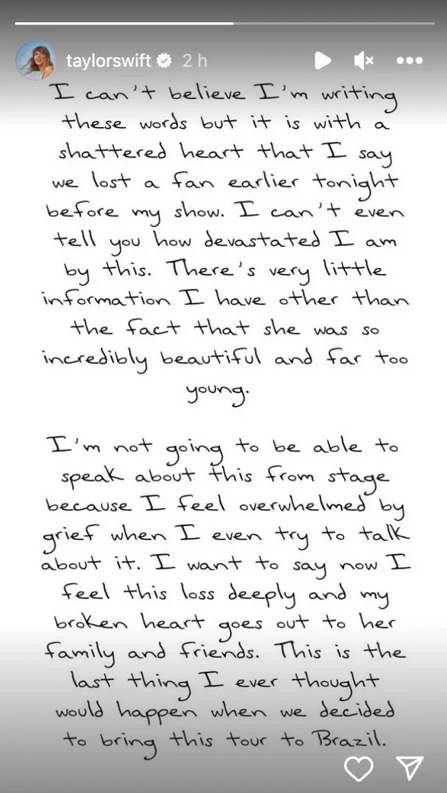 taylorswift 2 h
I can't believe I'm writing
these words but it is with a
shattered heart that I say
we lost a fan earlier tonight
before my show. I can't even
tell you how devastated I am
by this. There's very little
information I have other than
the fact that she was so
incredibly beautiful and far too
young.
I'm not going to be able to
speak about this from stage
because I feel overwhelmed by
grief when I even try to talk
about it. I want to say now I
feel this loss deeply and my
broken heart goes out to her
family and friends. This is the
last thing I ever thought
would happen when we decided
to bring this tour to Brazil.